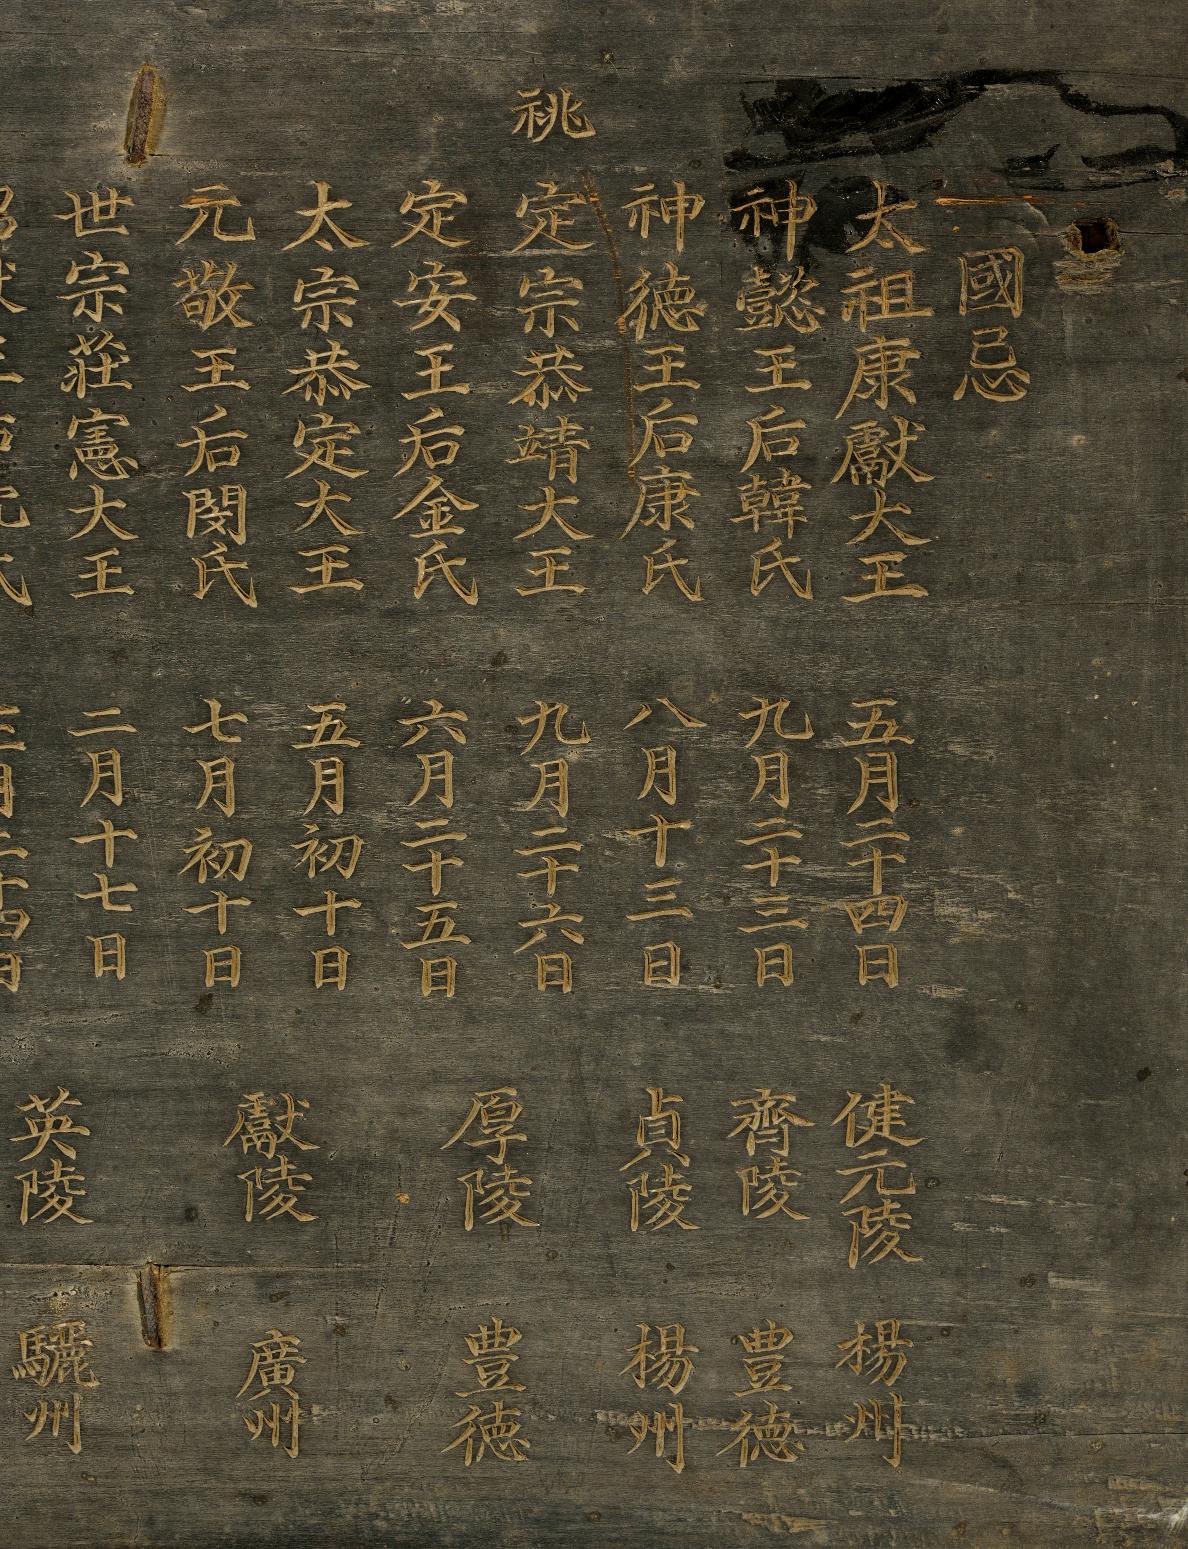 國忌
太祖康獻大王 五月二十四日 健元陵 楊州
神懿王后韓氏 九月二十三日 齊陵 豊德
神德王后康氏 八月十三日 貞陵 楊州
祧 定宗恭靖大王 九月二十六日
定安王后金氏 六月二十五日 厚陵 豊德
太宗恭定大王 五月初十日
元敬王后閔氏 七月初十日 獻陵 廣州
世宗莊憲大王 二月十七日
英陵 驪州